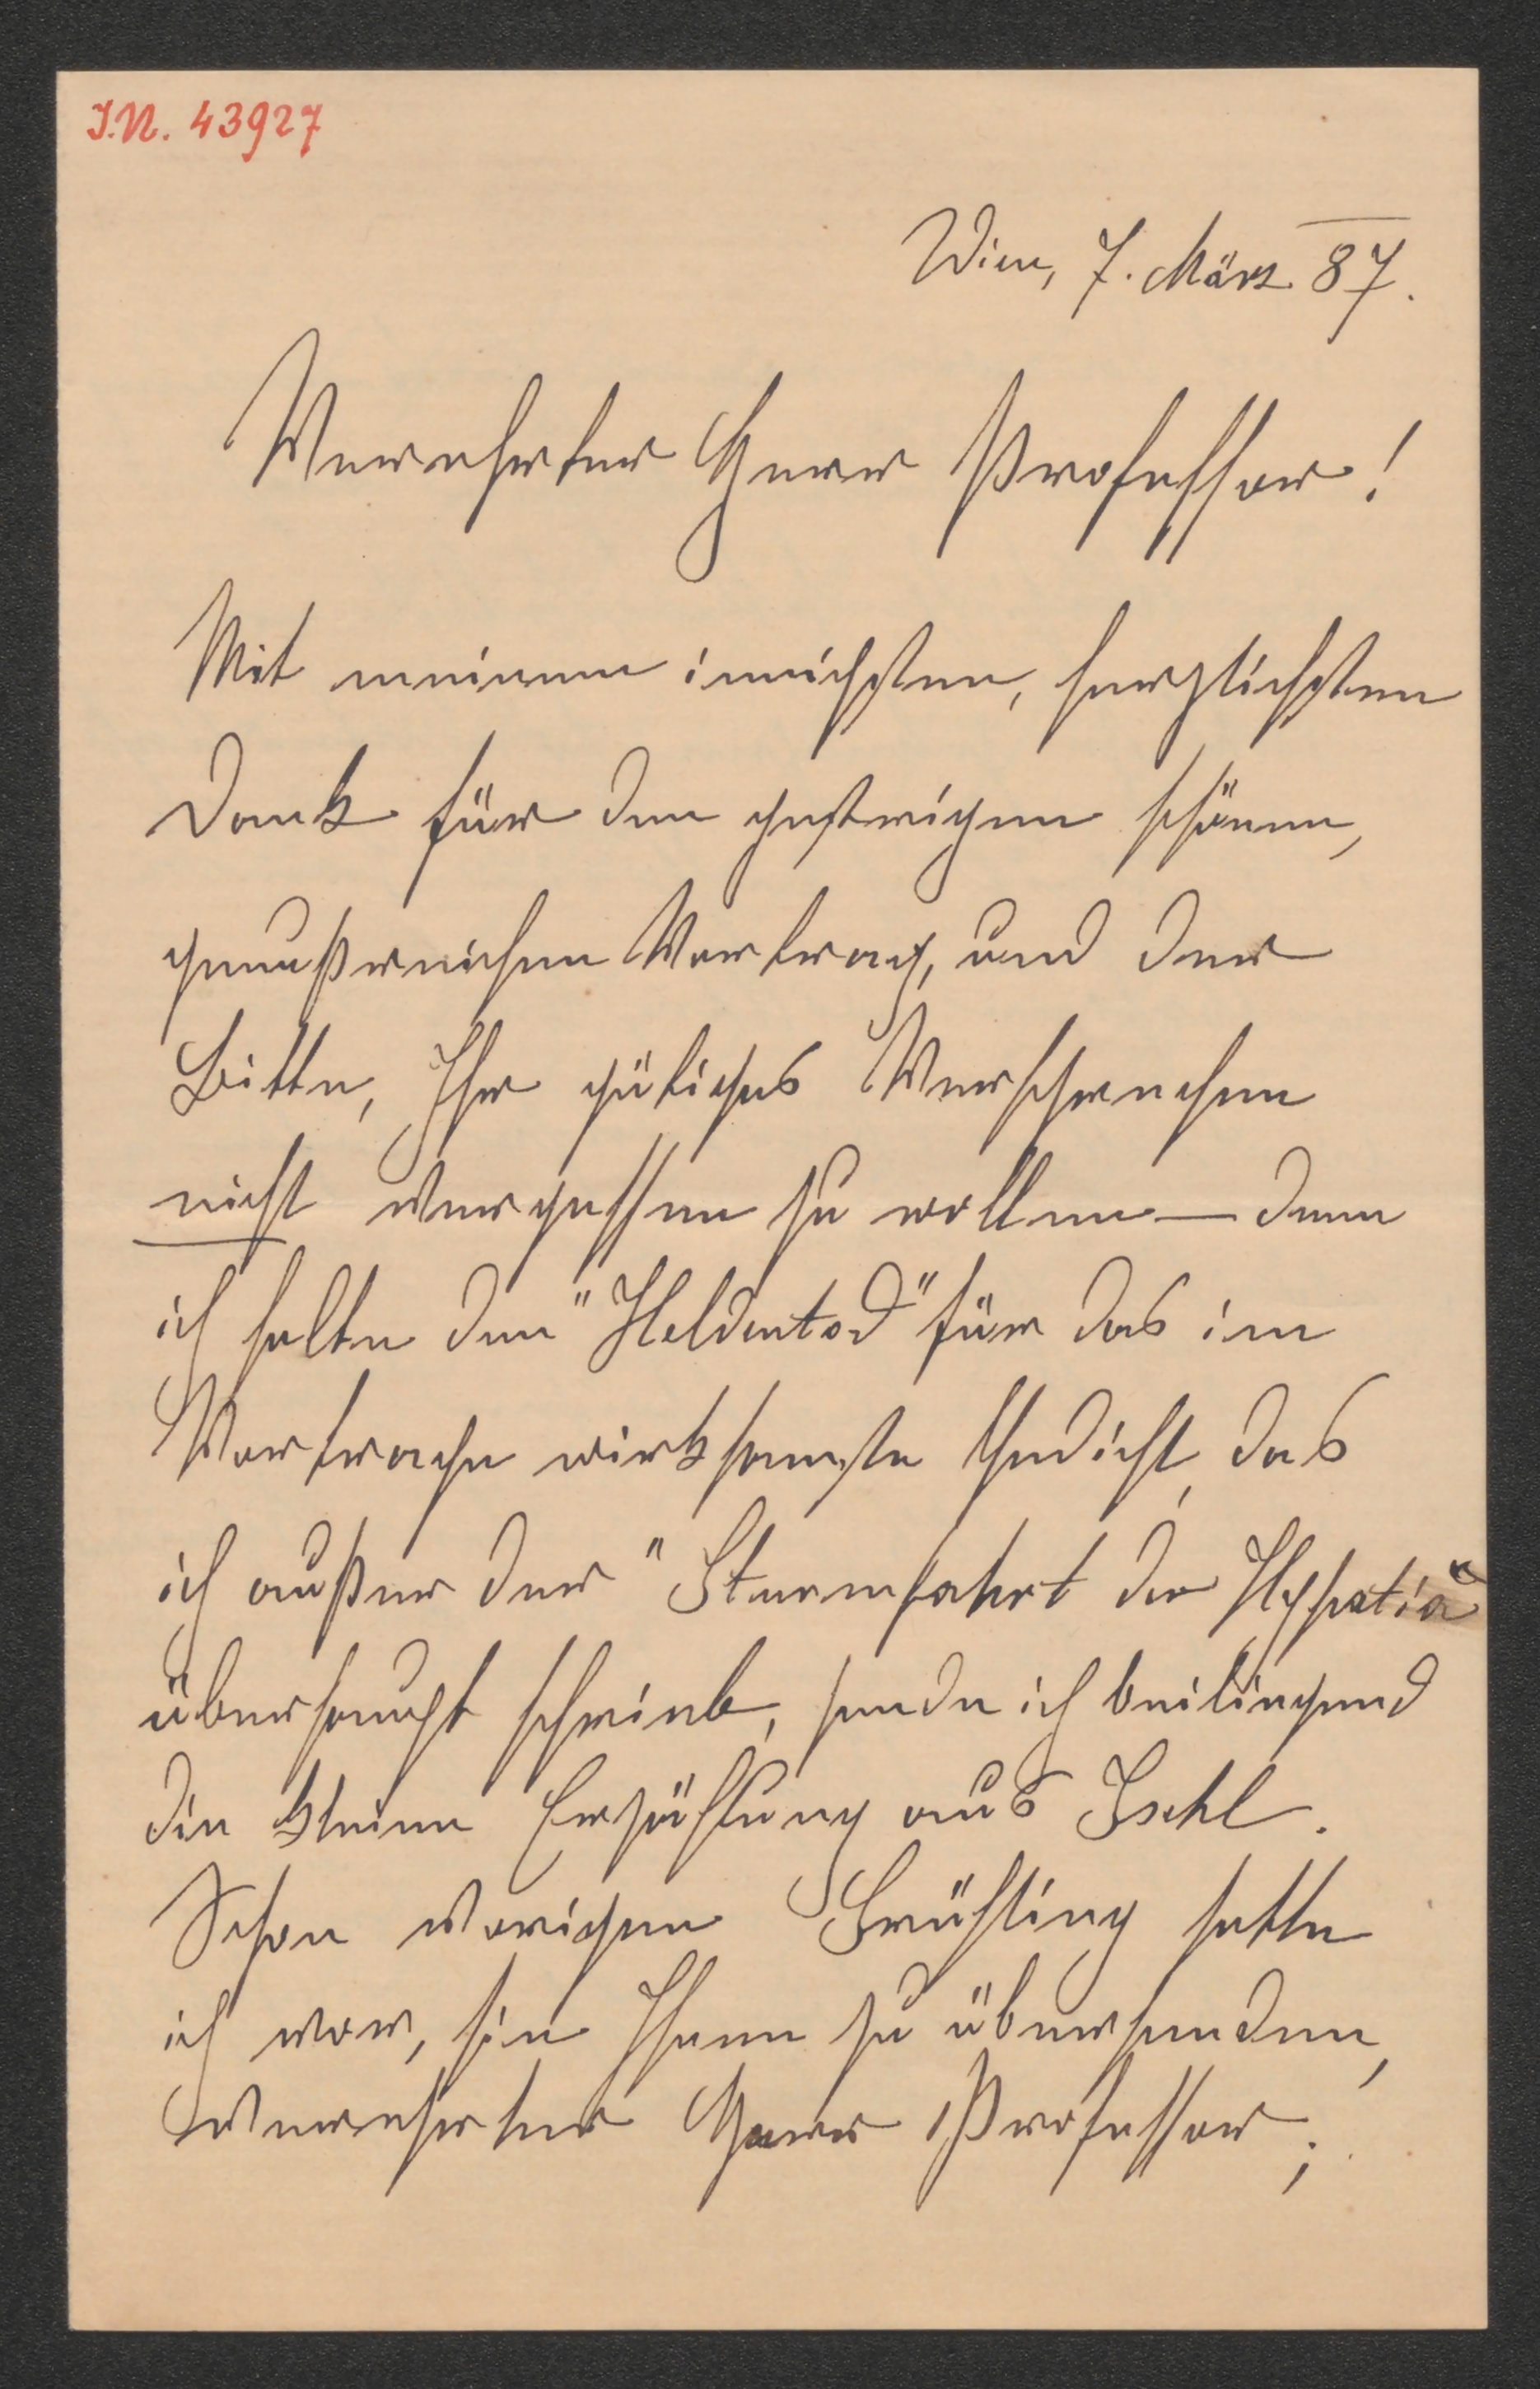 I.N. 43927
Wien, 7. März 87.
Verehrter Herr Professor!
Mit meinem innichsten, herzlichsten
Dank für den gestrigen schönen,
genußreichen Vortrag, und der
Bitte, Ihr gütiges Versprechen
nicht vergessen zu wollen — denn
ich halte den "Heldentod" für das im
Vortrage wirksamste Gedicht, das
ich außer der "Sturmfahrt der Hypatia"
überhaupt schrieb, sende ich beiliegend
die kleine Erzählung aus Ischl.
Schon vorigen Frühling hatte
ich vor, sie Ihnen zu übersenden,
verehrter Herr Professor;